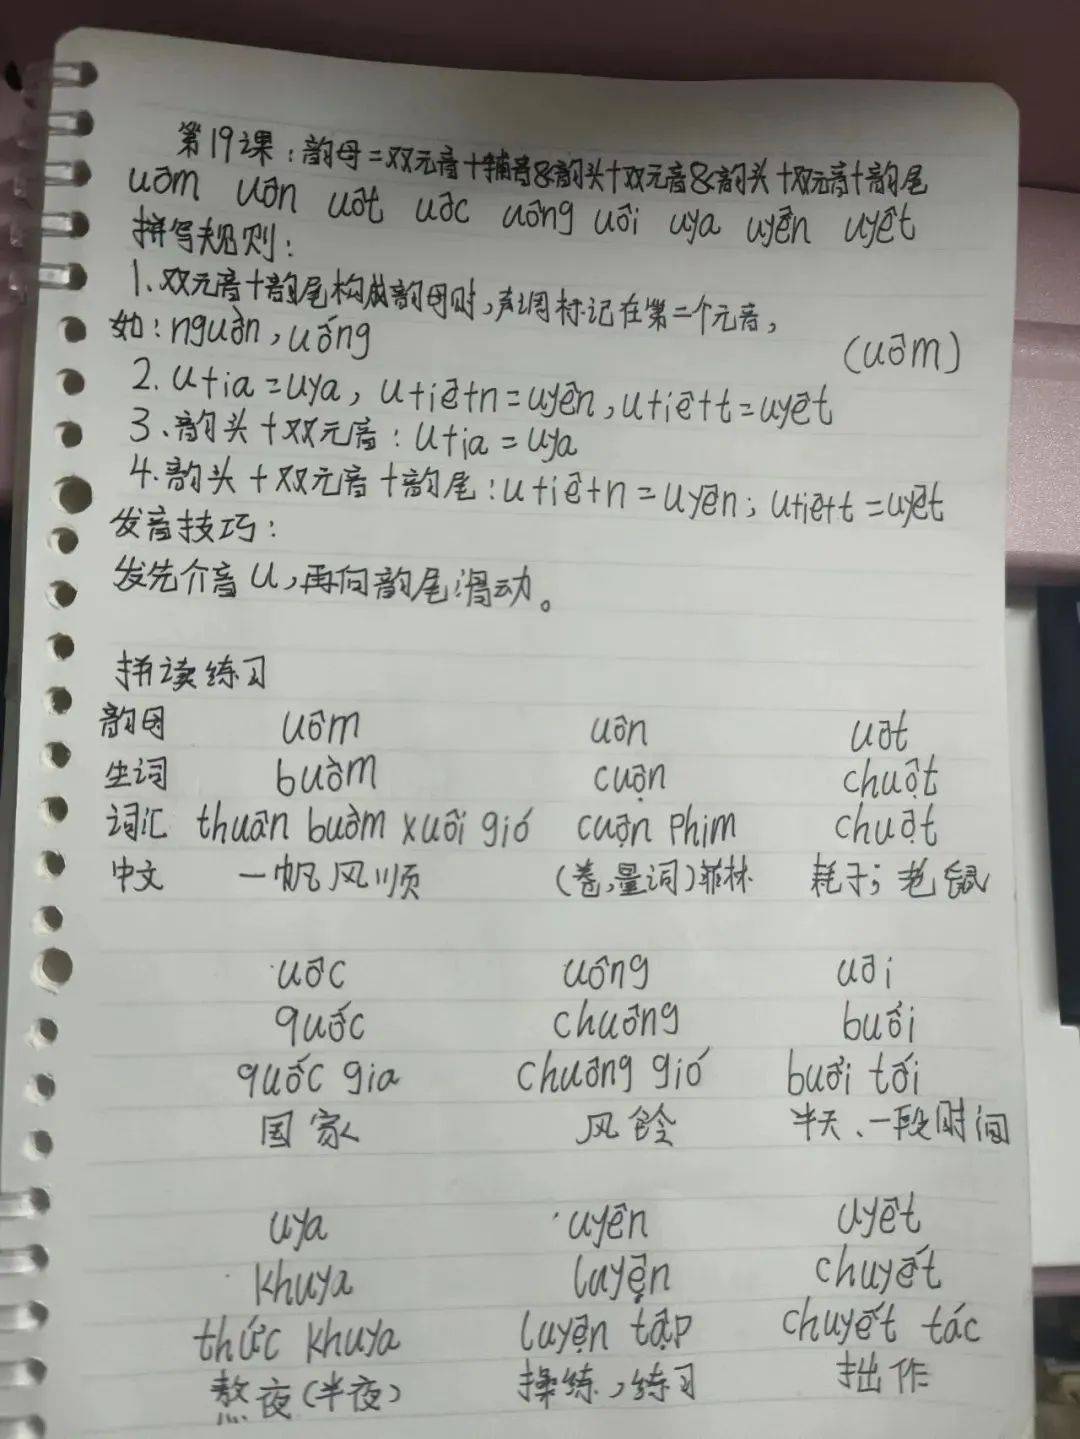 第19课：韵母=双元音+辅音&韵头+双元音&韵头+双元音+韵尾
uôm uôn uôt uôc uông uôi uya uyên uyêt
拼写规则：
1、双元音+韵尾构成韵母时，声调标记在第二个元音，
如：nguồn，uống (uôm)
2. u+ia=uya，u+iê+n=uyên，u+iê+t=uyêt
3、韵头+双元音：u+ia=uya
4、韵头+双元音+韵尾：u+iê+n=uyên；u+iê+t=uyêt
发音技巧：
发先介音u，再向韵尾滑动。
拼读练习
韵母 uôm uôn uôt
生词 buồm cuộn chuột
词汇 thuân buồm xuôi gió cuộn phim chuột
中文 一帆风顺 (卷，量词)菲林 耗子；老鼠
uôc uông uôi
quốc chuông buổi
quốc gia chuông gió buổi tối
国家 风铃 半天、一段时间
uya uyên uyêt
khuya luyện chuyết
thức khuya luyện tập chuyết tác
熬夜(半夜) 操练，练习 拙作